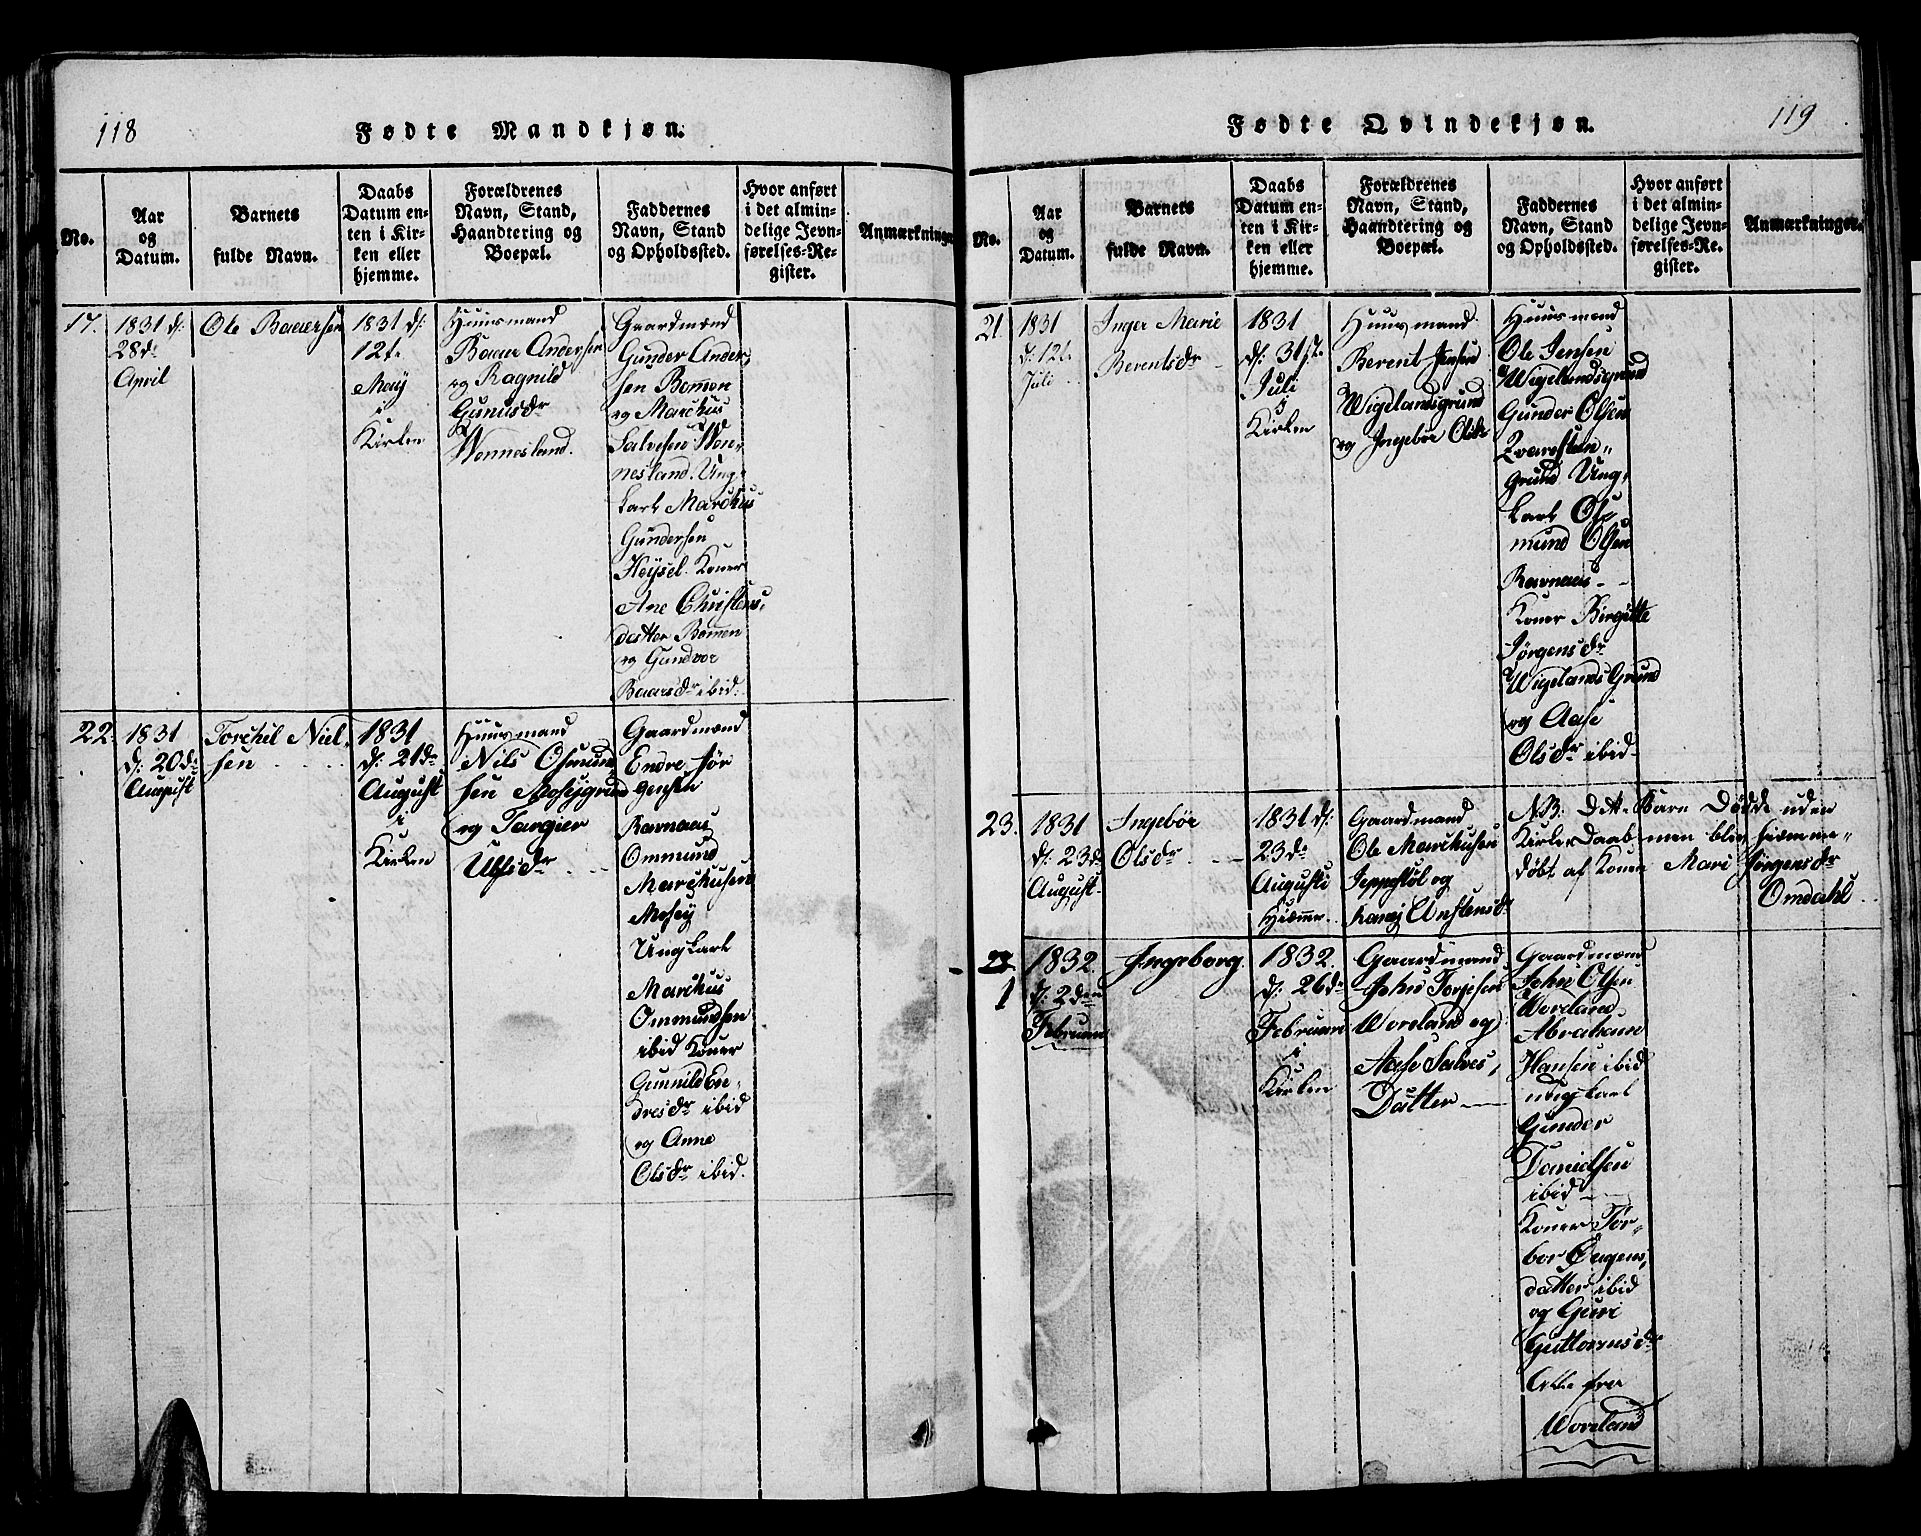 118
Fødte Mandkjøn.
No.
Aar
og
Datum.
Barnets
fulde Navn.
Daabs
Datum en-
ten i Kir-
ken eller
hjemme.
Forældrenes
Navn, Stand,
Haandtering og
Boepæl.
Faddernes
Navn, Stand
og Opholdssted.
Hvor anført
i det almin-
delige Jevn-
førelses-Re-
gister.
Anmærkninger
17.
1831 d:
28de
April
Ole Baaersen
1831 d:
12te
Maij
i
Kirken
Huusmand
Baar Andersen
og Ragnild
Gunusdr
Wennesland.
Gaardmænd
Gunder Ander-
sen Bomen
og Marchus
Salvesen Wen-
nesland. Ung-
karl Marchus
Gundersen
Heÿsel. Koner
Ane Christens-
datter Bomen
og Gundvor
Baarsdr ibid:
22.
1831
d: 20de
August
Torchil Niel-
sen
1831
d: 21de
August
i
Kirken
Huusmand
Nils Osmund-
sen Moseygrund
og Targier
Ulfsdr
Gaardmænd
Endre Jør
gensen
Ravnaas
Ommund
Marchusen
Mosey
Ungkarl
Marchus
Ommundsen
ibid Koner
Gunnild En-
dresdr ibid
og Anne
Olsdr ibid.
119
Fødte Qvindekjøn.
No.
Aar
og
Datum.
Barnets
fulde Navn.
Daabs
Datum en-
ten i Kir-
ken eller
hjemme.
Forældrenes
Navn, Stand,
Haandtering og
Boepæl.
Faddernes
Navn, Stand
og Opholdssted.
Hvor anført
i det almin-
delige Jevn-
førelses-Re-
gister.
Anmærkninger.
21.
1831
d: 12te
Juli
Inger Marie
Berentsdr
1831
d: 31te
Juli
i
Kirken
Huusmand
Berent Jensen
Wigelandsgrund
og Ingebør Olsdr
Huusmænd
Ole Jensen
Wigelandsgrund
Gunder Olsen
Kvarsten-
grund Ung-
karl Ole
mund Olsen
Ravnaas
Koner Birgitte
Jørgensdr
Wigelands Grund
og Aase
Olsdr ibid
23.
1831
d: 23de
August
Ingebør
Olsdr
1831 d:
23de
Augusti
Hiemme
Gaardmand
Ole Marchusen
Jeppestøl og
Karej Anstensdr
NB: Dette Barn Dødde uden
Kirke Daab men blev hiemme-
døbt af Konen Mari Jørgensdr
Omdahl
1
1832
d: 2den
Februari
Ingeborg
1832
d: 26de
Februari
i
Kirken
Gaardmand
John Torjesen
Woreland og
Aase Salves,
Datter
Gaardmænd
John Olsen
Woreland
Abraham
Hansen ibid
ungkarl
Gunder
Danielsen
ibid
Koner Tor-
bor Øugens,
datter ibid
og Guri
Guttormsdr
Alle fra
Woreland